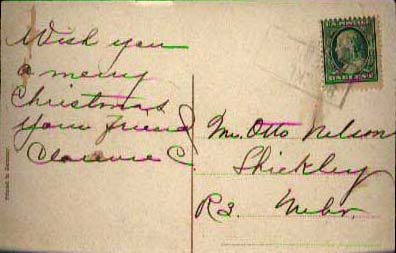 Wish you
a merry
Christmas
your friend
Clarence C.
Mr. Otto Nelson
Shickley
R3. Nebr.
Printed in Germany
ONE CENT